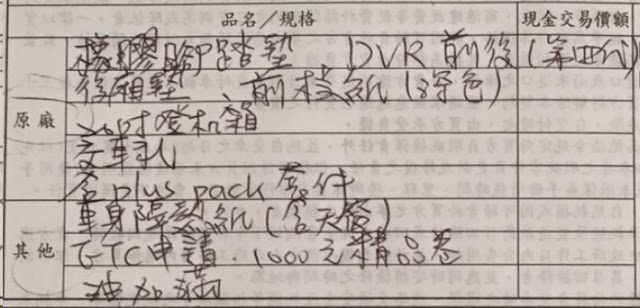 品名／規格 現金交易價額
橡膠腳踏墊 DVR前後(第四代)
後廂墊 前檔紙(深色)
原廠
20吋登机箱
交車礼
含plus pack套件
車身隔熱紙(含天窗)
其他
ETC申請.1000元精品卷
油加滿